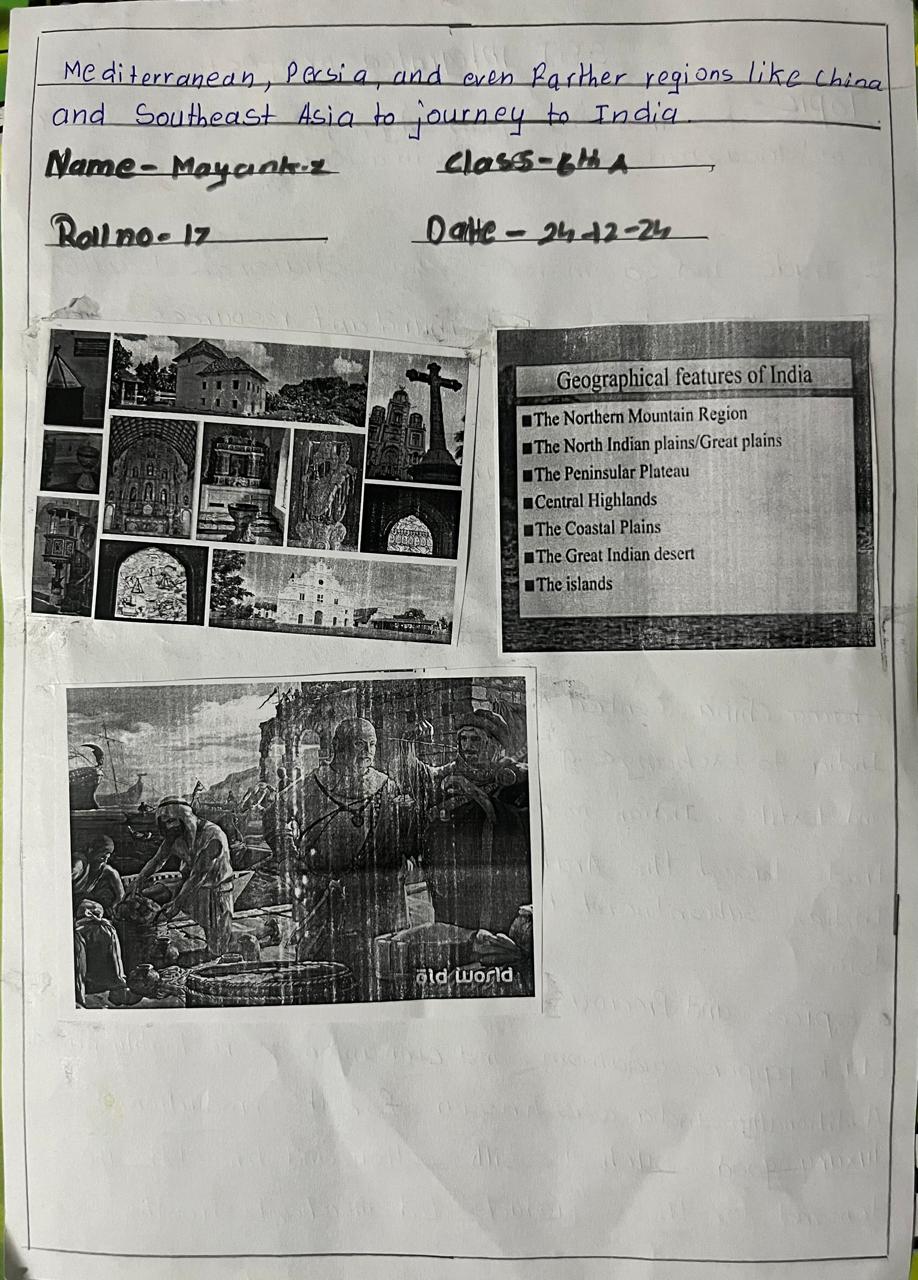 Mediterranean, Persia, and even Farther regions like China
and Southeast Asia to journey to India.
Name - Mayank.z
Class - 6th A
Roll no - 17
Date - 24-12-24
Geographical features of India
■ The Northern Mountain Region
■ The North Indian plains/Great plains
■ The Peninsular Plateau
■ Central Highlands
■ The Coastal Plains
■ The Great Indian desert
■ The islands
old world